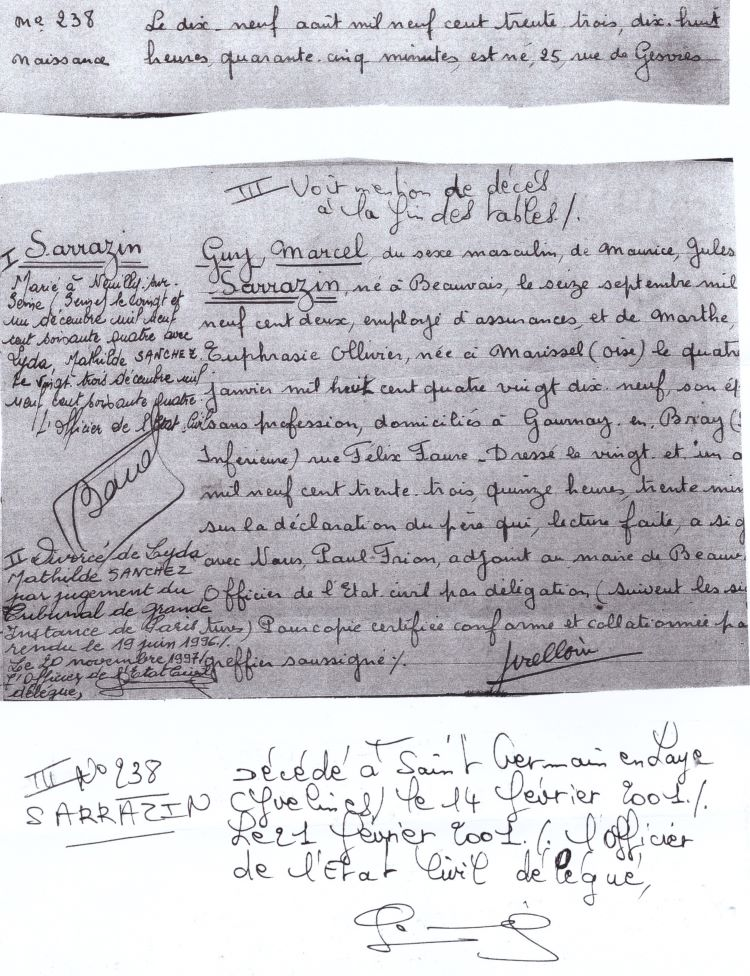 No 238
Naissance
Le dix-neuf août mil neuf cent trente trois, dix-huit
heures, quarante-cinq minutes, est né, 25, rue de Gesvres
III Voir mention de décès
à la fin des tables /.
I Sarrazin
Marié à Neuilly-sur-
Seine (Seine) le vingt et
un décembre mil neuf
cent soixante quatre avec
Lyda, Mathilde SANCHEZ.
Le vingt trois décembre mil
neuf cent soixante quatre.
L'Officier de l'Etat Civil
II Divorcé de Lyda
Mathilde SANCHEZ
par jugement du
Tribunal de Grande
Instance de Paris
rendu le 19 juin 1996/.
Le 20 novembre 1997/
L'Officier de l'Etat Civil
délégué,
Guy, Marcel, du sexe masculin, de Maurice, Jules
Sarrazin, né à Beauvais, le seize septembre mil
neuf cent deux, employé d'assurances, et de Marthe,
Euphrasie Ollivier, née à Marissel (oise) le quatr
janvier mil huit cent quatre vingt dix-neuf, son ép
sans profession, domiciliés à Gournay-en-Bray (
Inférieure) rue Félix Faure - Dressé le vingt et un a
mil neuf cent trente-trois, quinze heures, trente min
sur la déclaration du père qui, lecture faite, a sig
avec Nous, Paul Frion, adjoint au maire de Beauv
Officier de l'Etat civil par délégation (suivent les si
tures) Pour copie certifiée conforme et collationnée pa
greffier soussigné /.
III No 238
SARRAZIN
Décédé à Saint Germain en Laye
(Yvelines) le 14 février 2001./.
Le 21 février 2001./. l'Officier
de l'Etat Civil délégué,